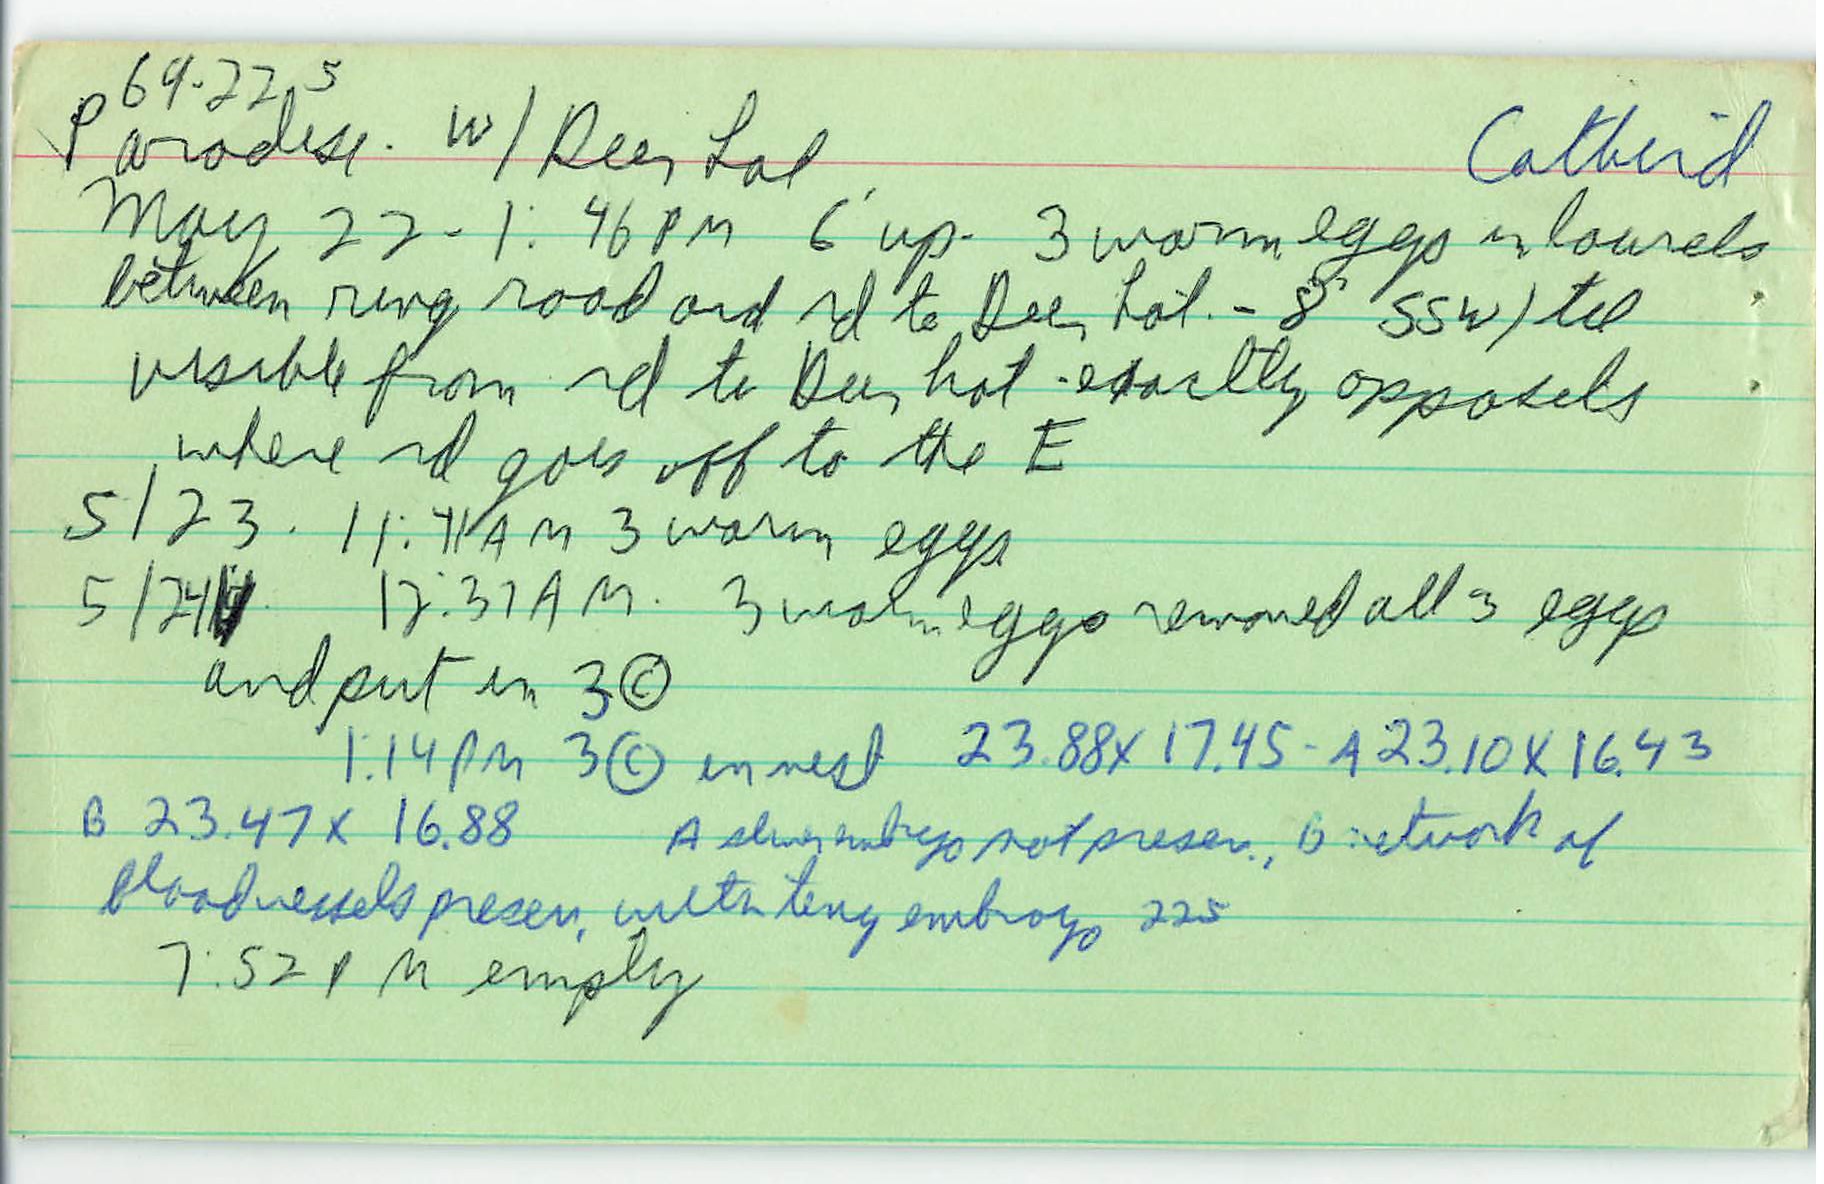 69-22 5
Paradise. w/ Deer Lot Catbird
May 22 - 1:46 PM 6' up - 3 warm eggs in laurels
between ring road and rd to Deer Lot. - 8' SSW) tel
visible from rd to Deer Lot - exactly opposels
where rd goes off to the E
5/23. 11:41 AM 3 warm eggs
5/24 12:37 AM. 3 warm eggs removed all 3 eggs
and put in 3 ©
1:14 PM 3 © in nest 23.88 x 17.45 - A 23.10 x 16.43
B 23.47 x 16.88 A embryo not presen., B network of
bloodvessels presen, with tiny embryo 225
7:52 PM empty